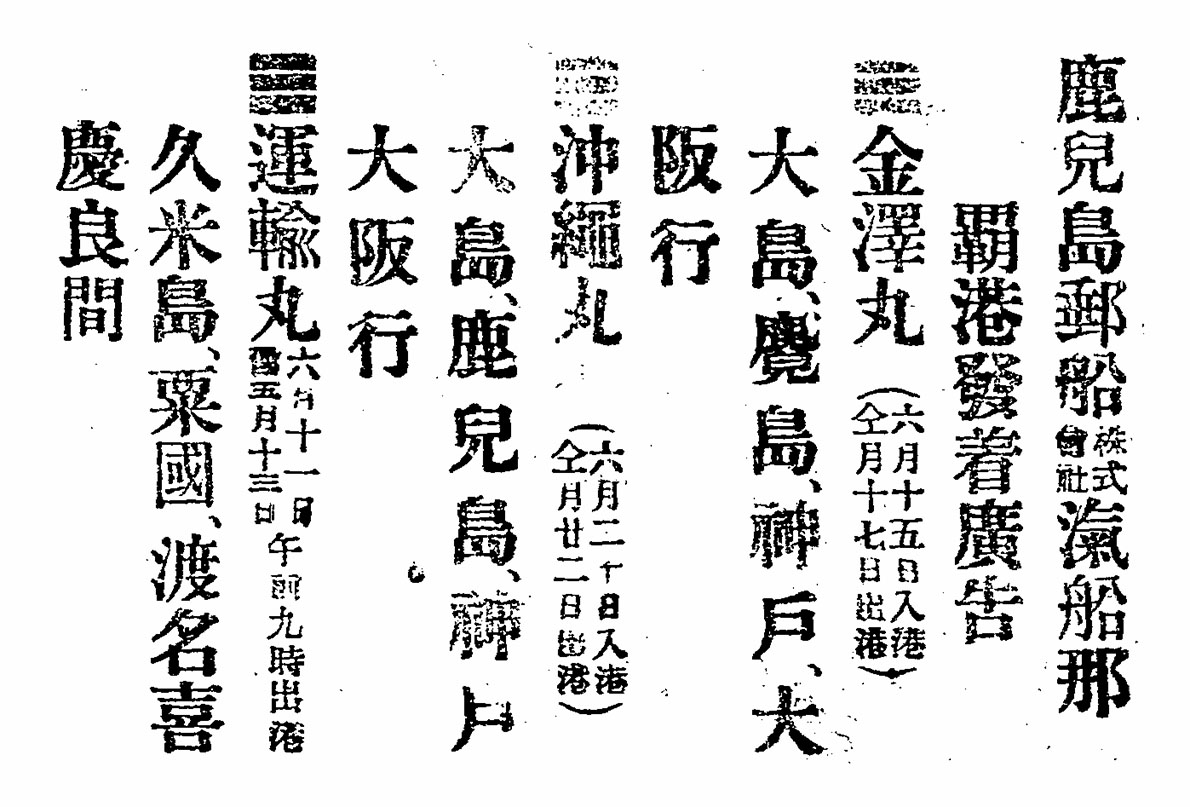 鹿兒島郵船株式會社滊船那
覇港發着廣告
☰金澤丸(六月十五日入港仝月十七日出港)
大島、麑島、神戸、大
阪行
☰沖繩丸(六月二十日入港仝月廿二日出港)
大島、鹿兒島、神戸
大阪行
☰運輸丸六月十一日舊五月十三日午前九時出港
久米島、粟國、渡名喜
慶良間